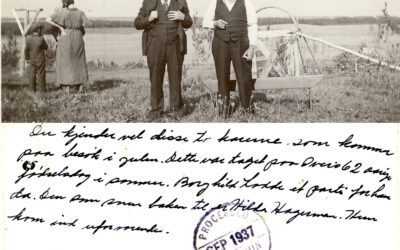 Du kjender vel disse to karerne som kommer
paa besök i julen. Dette var taget paa Overs 62 aarige
födselsdag i sommer. Borghild hadde et parti for ham
da. Den som sner baken til er Hilda Hagerman. Hun
kom ind uforvarende.
PROCESSED
SEP 1937